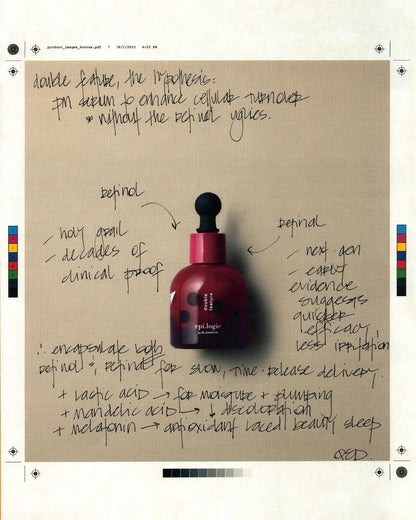 product_images_kovree.pdf 7 18/1/2023 6:52 PM
double feature, the hypothesis:
PM serum to enhance cellular turnover
* without the retinol uglies.
retinol
retinal
– holy grail
– decades of
clinical proof
– next gen
– early
evidence
suggests
quicker
efficacy,
less irritation
double
feature
epi.logic
∴ encapsulate both
retinol & retinal for slow, time-release delivery.
+ lactic acid → for moisture + plumping
+ mandelic acid → ↓ discoloration
+ melatonin → antioxidant laced beauty sleep
QED.